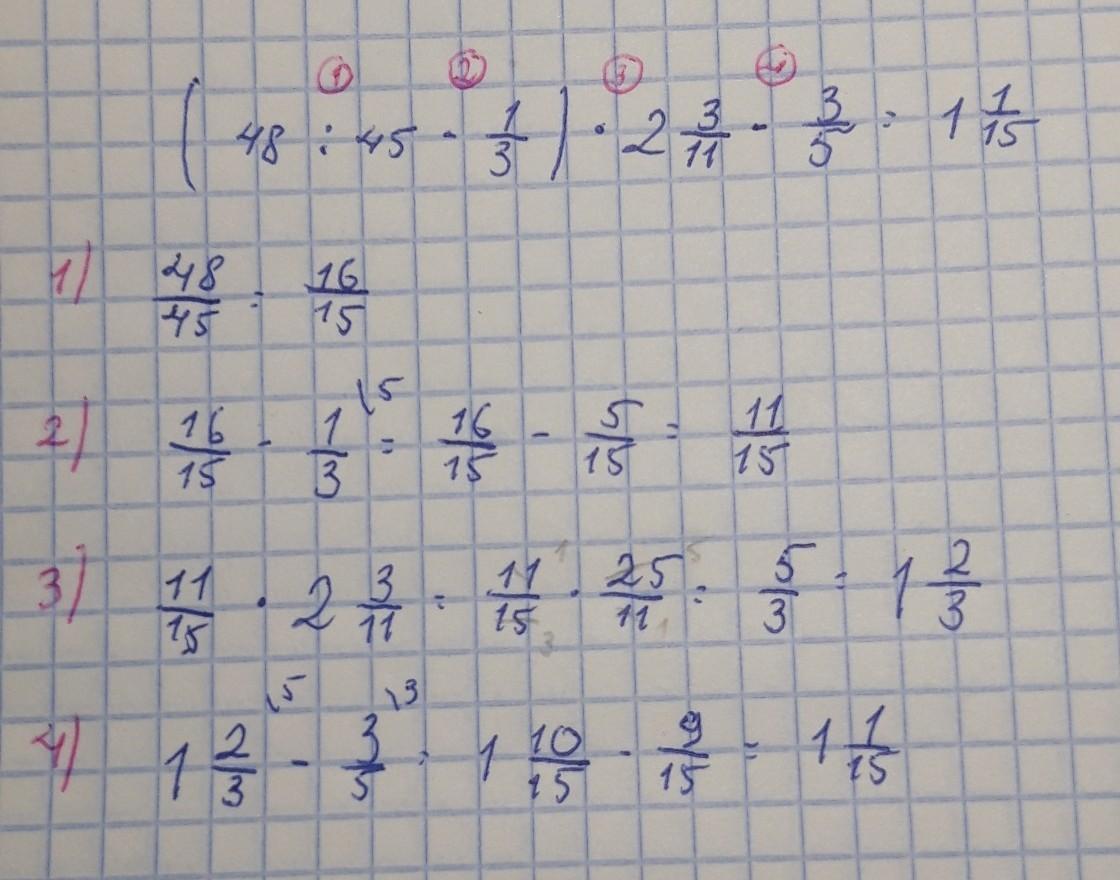 ① ② ③ ④
( 48 : 45 - 1/3 ) · 2 3/11 - 3/5 = 1 1/15
1) 48/45 = 16/15
2) 16/15 - 1/3 \5 = 16/15 - 5/15 = 11/15
3) 11/15 · 2 3/11 = 11/15 · 25/11 = 5/3 = 1 2/3
4) 1 2/3 \5 - 3/5 \3 = 1 10/15 - 9/15 = 1 1/15